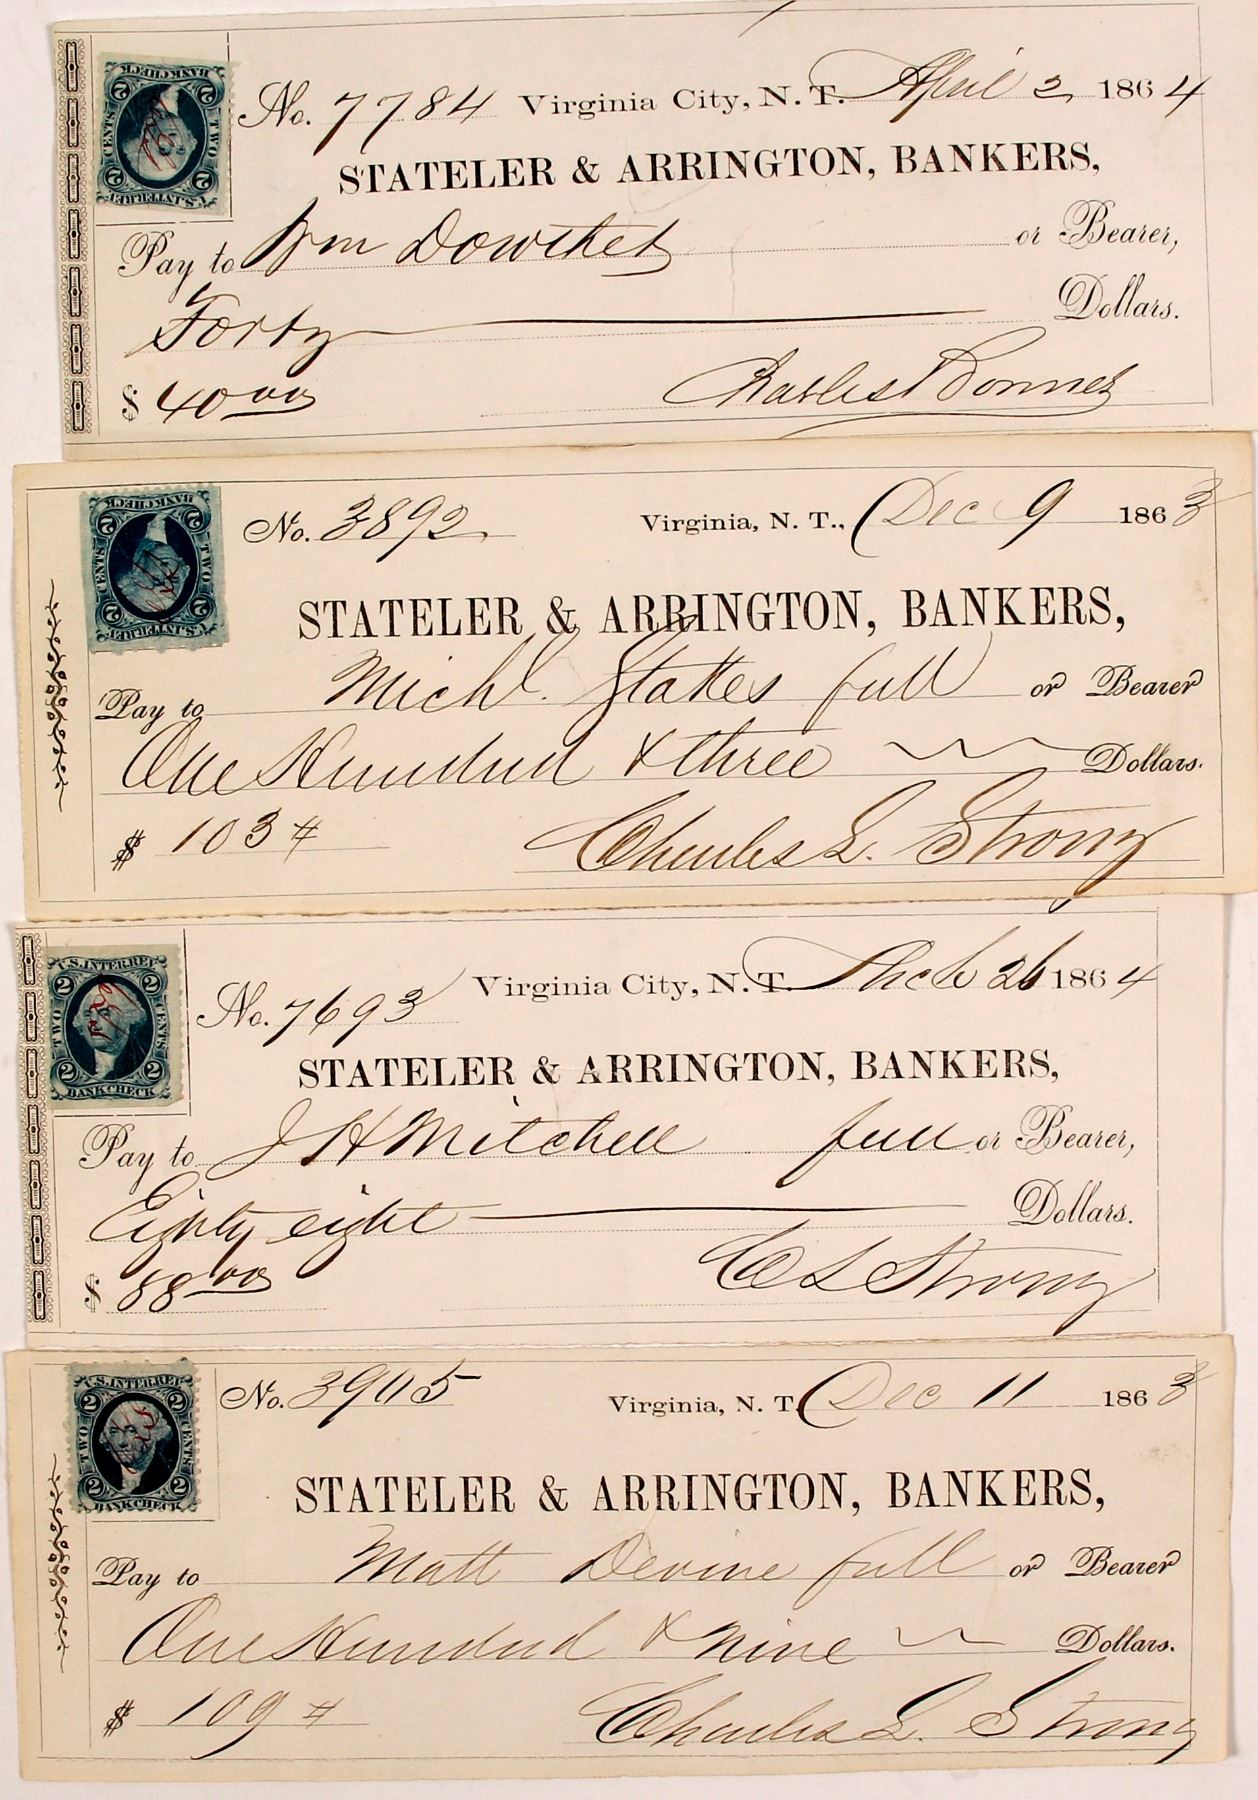 U.S. INTER. REV.
2 2
TWO CENTS
2 2
BANK CHECK
No. 7784 Virginia City, N. T. April 2, 1864
STATELER & ARRINGTON, BANKERS,
Pay to Wm or Bearer,
Forty Dollars.
$ 40 00
Charles Bonner
U.S. INTER. REV.
2 2
TWO CENTS
2 2
BANK CHECK
No. 3892 Virginia, N. T., Dec 9 1863
STATELER & ARRINGTON, BANKERS,
Pay to Michl. Stakes full or Bearer
One Hundred & three Dollars.
$ 103
Charles L. Strong
U.S. INTER. REV.
2 2
TWO CENTS
2 2
BANK CHECK
No. 7693 Virginia City, N. T. Mch 26 1864
STATELER & ARRINGTON, BANKERS,
Pay to J H Mitchell full or Bearer,
Eighty eight Dollars.
$ 88 00
C L Strong
U.S. INTER. REV.
2 2
TWO CENTS
2 2
BANK CHECK
No. Virginia, N. T. Dec 11 1863
STATELER & ARRINGTON, BANKERS,
Pay to Matt Devine full or Bearer
One Hundred & nine Dollars.
$ 109
Charles L. Strong